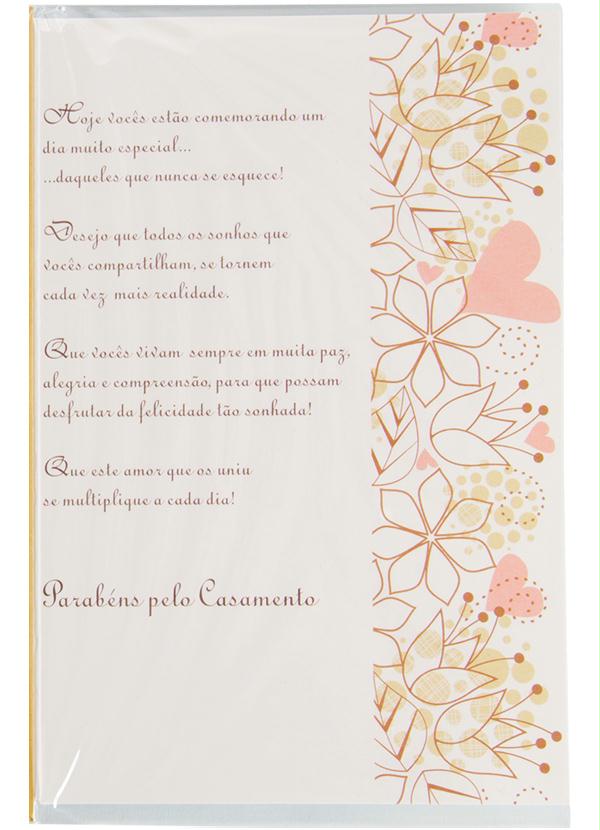 Hoje vocês estão comemorando um
dia muito especial...
...daqueles que nunca se esquece!
Desejo que todos os sonhos que
vocês compartilham, se tornem
cada vez mais realidade.
Que vocês vivam sempre em muita paz,
alegria e compreensão, para que possam
desfrutar da felicidade tão sonhada!
Que este amor que os uniu
se multiplique a cada dia!
Parabéns pelo Casamento